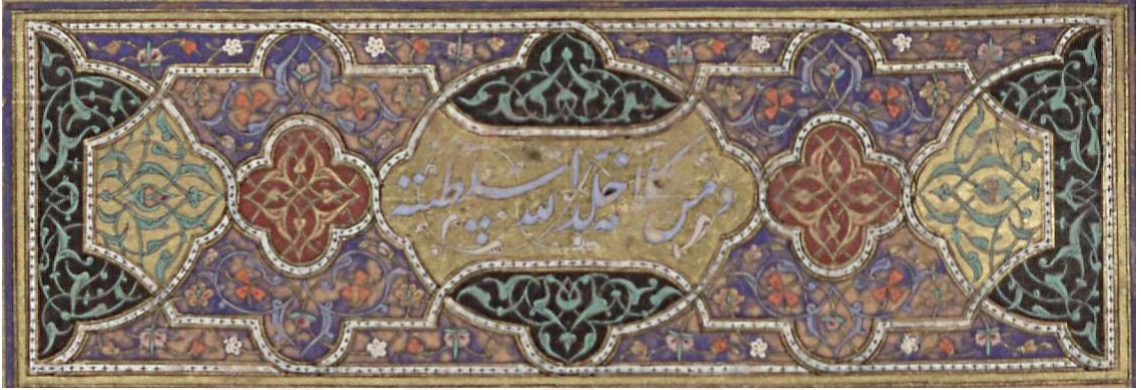 و من کلامه خلد الله سلطنته